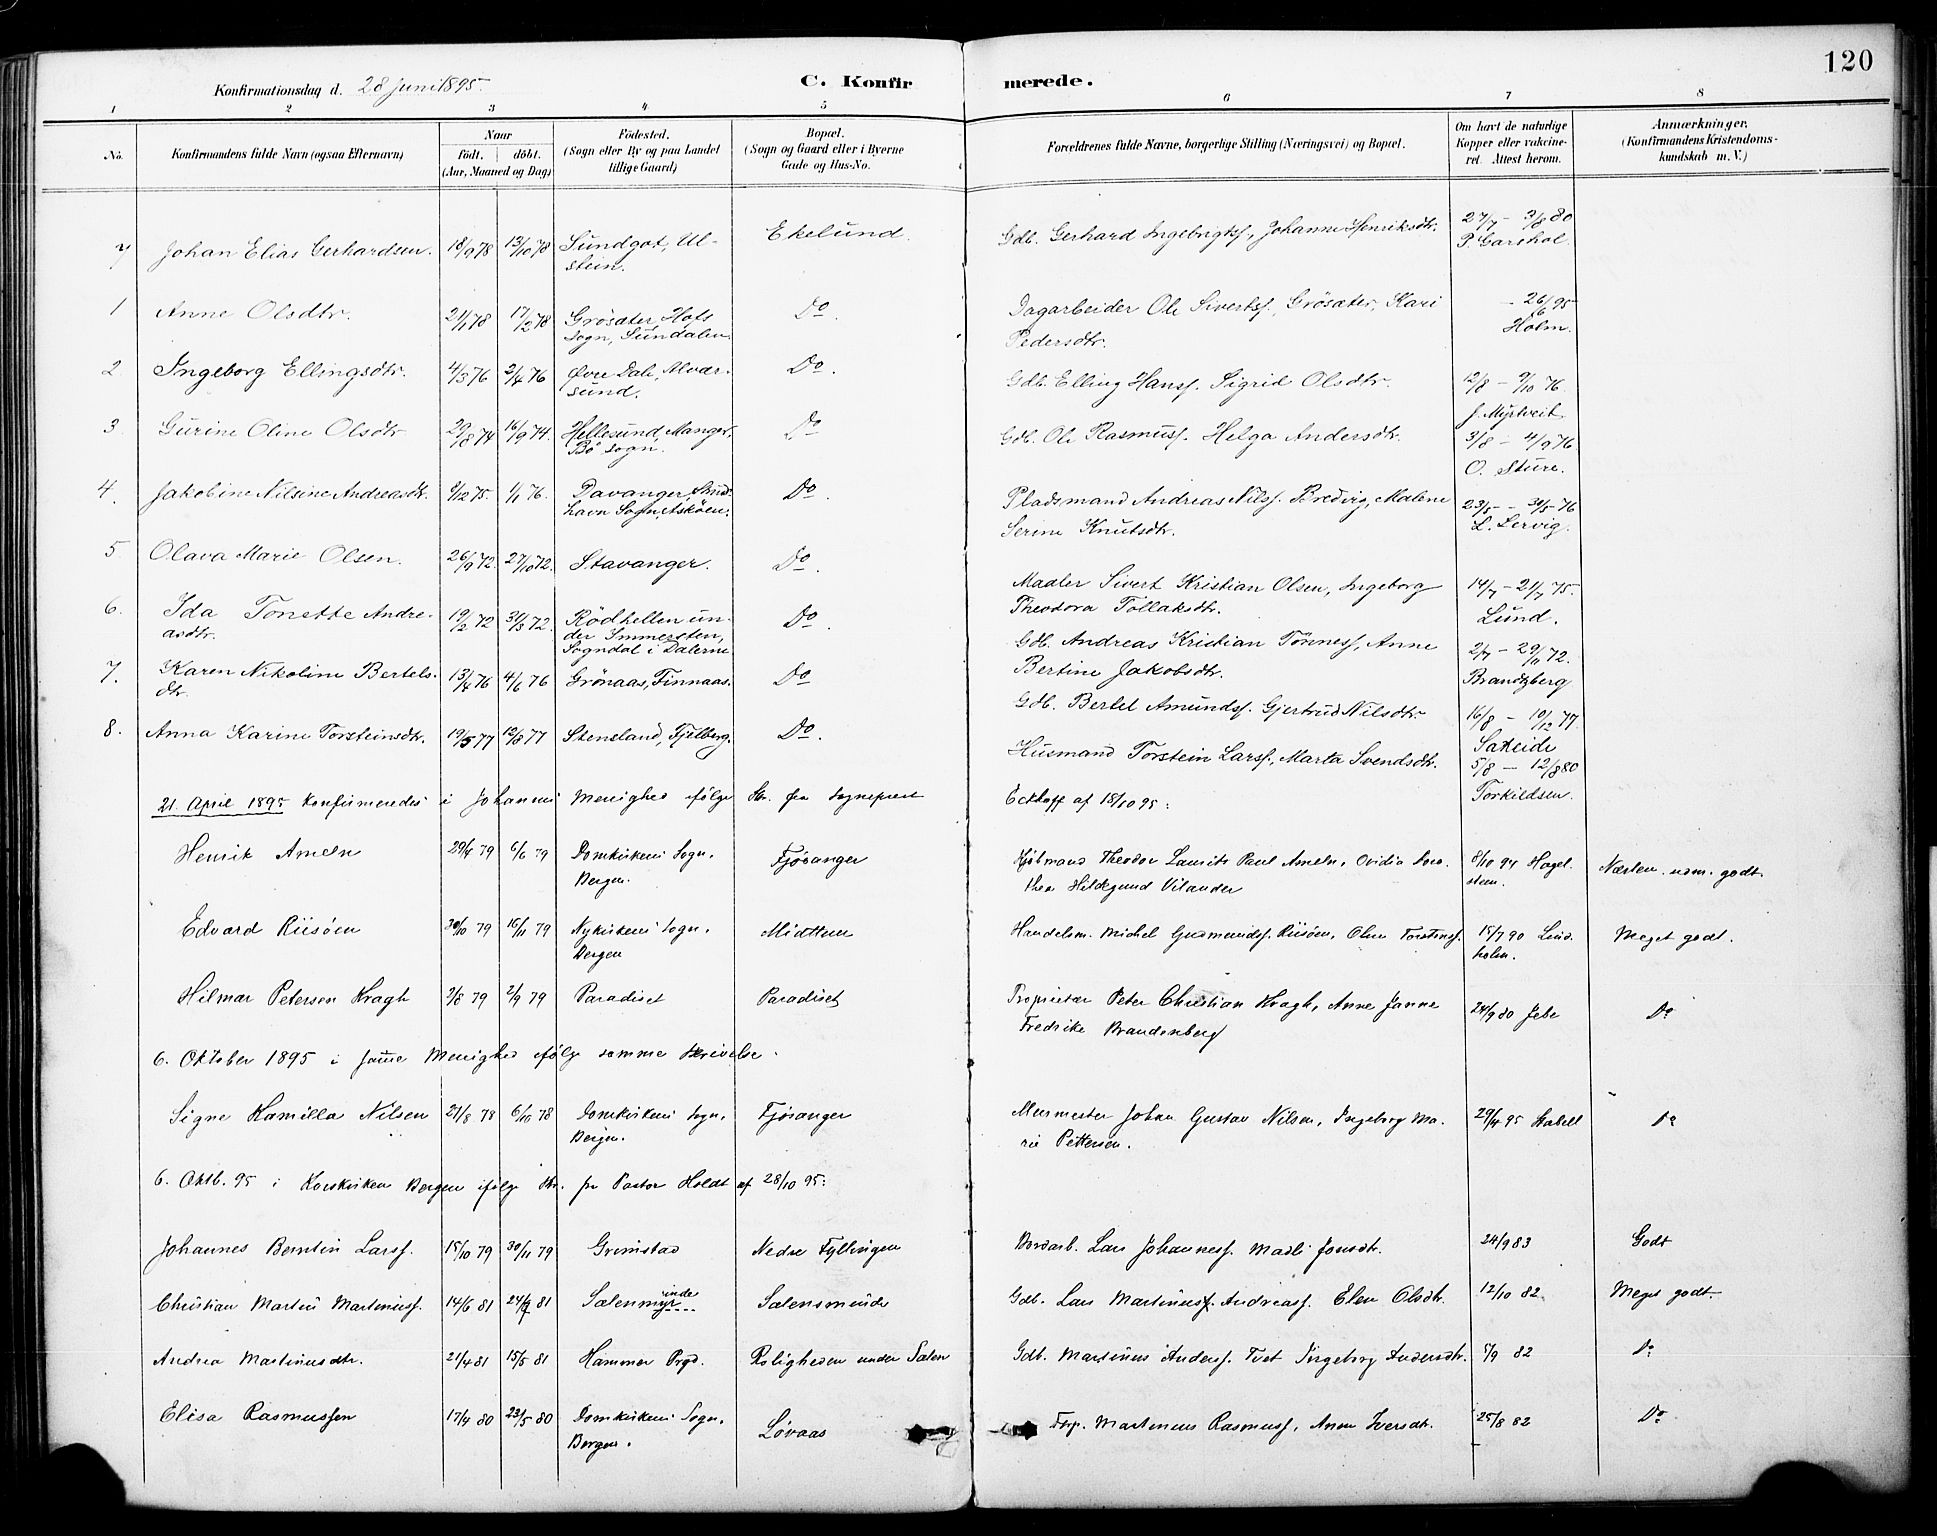 120
Konfirmationsdag d. 28 Juni 1895.
C. Konfirmerede.
1 2 3 4 5 6 7 8
No.
Konfirmandens fulde Navn (ogsaa Efternavn)
Naar
födt. döbt.
(Aar, Maaned og Dag)
Födested.
(Sogn eller By og paa Landet
tillige Gaard)
Bopæl.
(Sogn og Gaard eller i Byerne
Gade og Hus-No.
Forældrenes fulde Navne, borgerlige Stilling (Næringsvei) og Bopæl.
Om havt de naturlige
Kopper eller vakcine-
ret. Attest herom.
Anmærkninger.
(Konfirmandens Kristendoms-
kundskab m. V.)
7 Johan Elias Gerhardsen. 18/9 78 13/10 78 Sundgot, Ul-
stein.
Ekelund.
Gdb. Gerhard Ingebrigtsf., Johanne Henriksdtr.
27/7 - 3/8 80
P. Garshol.
1 Anne Olsdtr. 21/1 78 17/2 78 Grösæter, Hofs
Sogn, Sundalen.
Do.
Dagarbeider Ole Sivertsf. Grösæter, Kari
Pedersdtr.
- 26/6 95
Holm.
2 Ingeborg Ellingsdtr. 4/3 76 2/4 76 Øvre Dale, Alver-
sund.
Do.
Gdb. Elling Hansf. Sigrid Olsdtr.
12/8 - 9/10 76.
J. Myrtveit.
3 Gurine Oline Olsdtr 29/8 74 16/9 74. Hellesund, Manger,
Bö Sogn.
Do
Gdb. Ole Rasmusf. Helga Andersdtr.
3/8 - 4/9 76
O. Sture.
4. Jakobine Nilsine Andreasdtr. 9/12 75. 1/1 76. Davanger, Strud-
havn Sogn, Askøen.
Do.
Pladsmand Andreas Nilsf. Bredvig, Malene
Serine Knutsdtr.
23/5 - 30/5 76
L. Lervig.
5 Olava Marie Olsen. 26/9 72. 27/10 72. Stavanger. Do.
Maaler Sivert Kristian Olsen, Ingeborg
Theodora Tollaksdtr.
14/7 - 21/7 75.
Lund.
6. Ida Tonette Andre-
asdtr.
19/2 72 31/3 72. Rödhellen un-
der Immersten,
Sogndal i Dalerne
Do.
Gdb. Andreas Kristian Tönnesf, Anne
Bertine Jakobsdtr.
2/7 - 29/11 72.
Brandtzberg
7. Karen Nikoline Bertels-
dtr.
13/4 76 4/6 76 Grönaas, Finnaas. Do
Gdb. Bertel Amundsf. Gjertrud Nilsdtr.
16/8 - 10/12 77.
Sakeide
8. Anna Karine Torsteinsdtr. 19/5 77 12/8 77 Stensland, Fjelberg. Do.
Husmand Torstein Larsf., Marta Svendsdtr.
5/8 - 12/8 80
Torkildsen.
21. April 1895 konfirmeredes i Johannes Menighed ifölge Skr. fra Sognepræst
Eckhoff af 18/10 95:
Henrik Ameln 29/4 79 6/6 79 Domkirkens Sogn,
Bergen.
Fjösanger
Kjöbmand Theodor Laurits Paul Ameln, Ovidia Doro-
thea Hildegund Vilander
8/10 94 Hagel-
steen.
Næsten. udm. godt.
Edvard Riisöen 30/10 79 16/11 79 Nykirkens Sogn,
Bergen
Midttun
Handelsm. Michel Gudmundsf. Riisöen, Oline Torstensf.
15/7 90 Lind-
holm.
Meget godt.
Hilmar Petersen Kragh 3/8 79 2/9 79 Paradiset Paradiset
Proprietær Peter Christian Kragh, Anne Janna
Fredrike Brandenberg
24/9 80 Jebe
Do
6. Oktober 1895 i samme Menighed ifölge samme Skrivelse.
Signe Kamilla Nilsen 21/8 78 6/10 78 Domkirkens Sogn,
Bergen.
Fjösanger
Murmester Johan Gustav Nilsen, Ingeborg Ma-
rie Pettersen.
29/4 95 Stabell
Do
6. Oktb. 95 i Korskirken Bergen ifölge Skr. fra Pastor Holdt af 28/10 95:
Johannes Berntin Larsf. 15/10 79 30/11 79 Grimstad Nedre Fyllingen
Bordarb. Lars Johannesf. Madli Jonsdtr.
24/9 83
Godt
Christian Martin Martinusf. 14/6 81 24/7 81 Sælenmyr
inde
Sælensminde
Gdb. Lars Martinusf. Andreasf. Elen Olsdtr.
12/10 82.
Meget godt.
Andrea Martinusdtr. 21/4 81 15/5 81 Hammer Prgd. Roligheden under Sælen
Gdb. Martinus Andersf. Tvet Ingeborg Andersdtr.
5/9 82
Do
Elisa Rasmussen 17/4 80 23/5 80 Domkirkens Sogn,
Bergen.
Løvaas
Forp. Martinus Rasmusf, Anna Iversdtr.
25/8 82
Do.